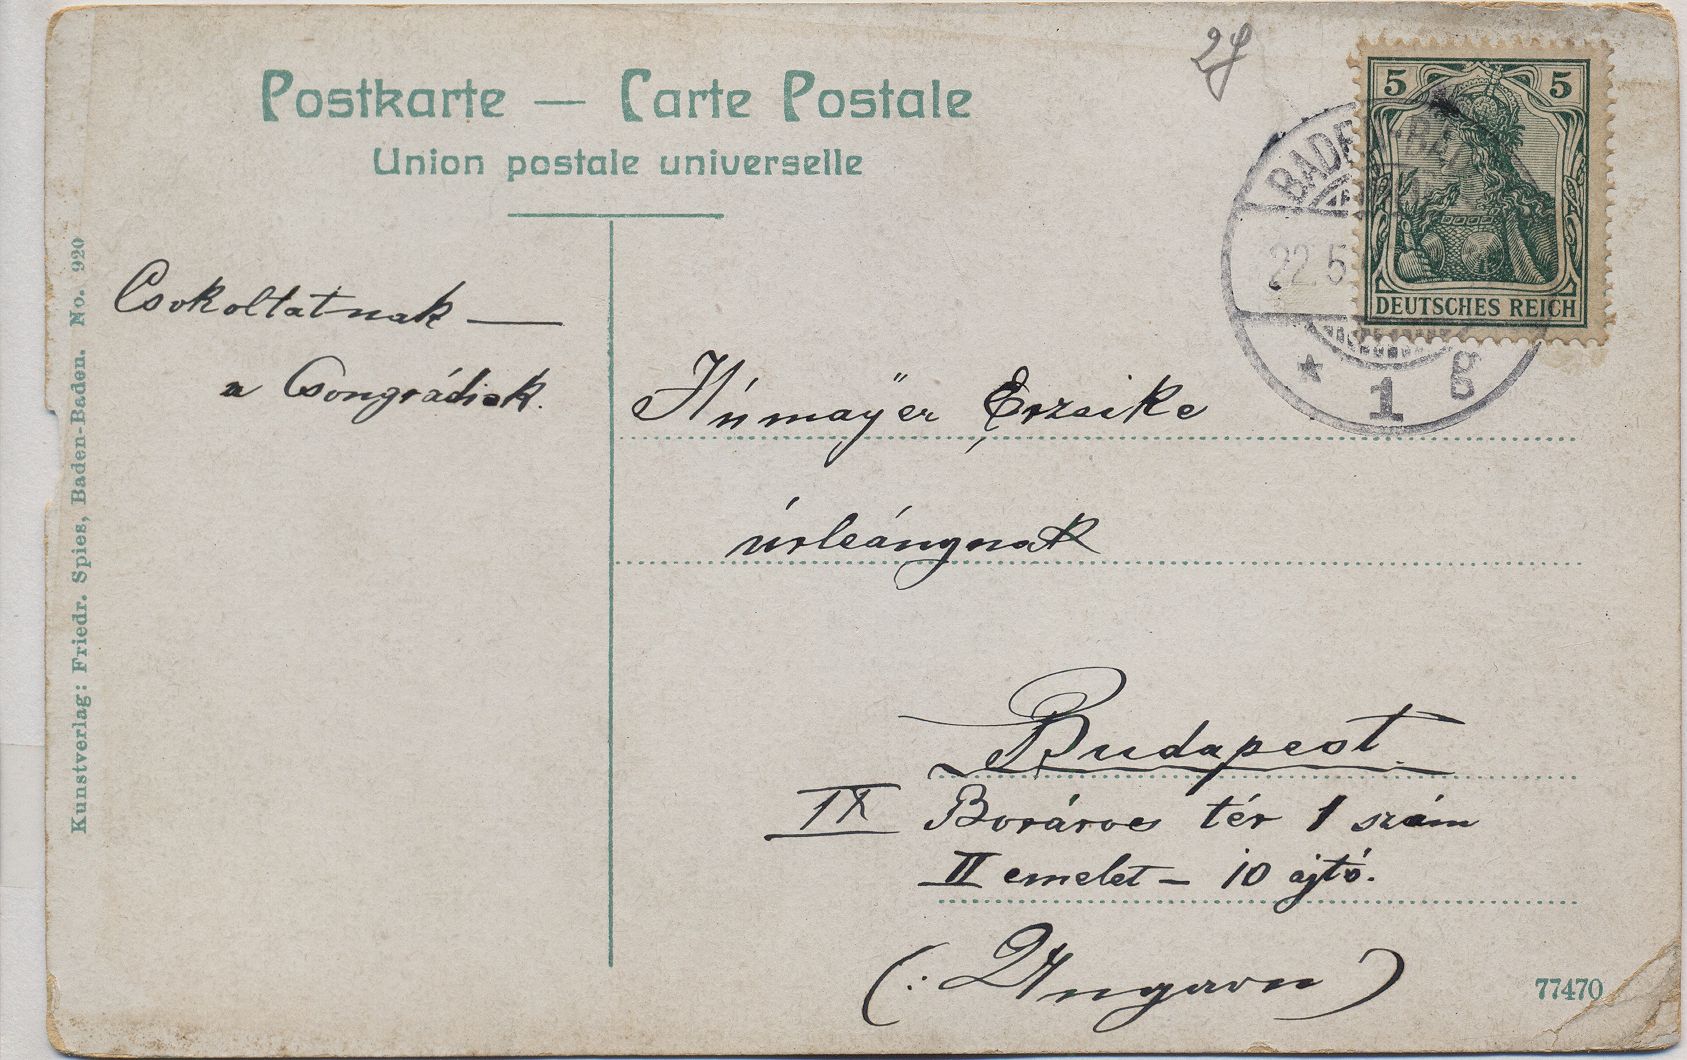 Postkarte — Carte Postale
Union postale universelle
5 5
DEUTSCHES REICH
22.5
* 1 g
Csokoltatnak —
a Csongrádiak.
Erzsike
úrleángnak
Budapest.
IX Boráros tér 1 szám
II emelet — 10 ajtó.
(: Ungarn )
Kunstverlag: Friedr. Spies, Baden-Baden. No. 920
77470